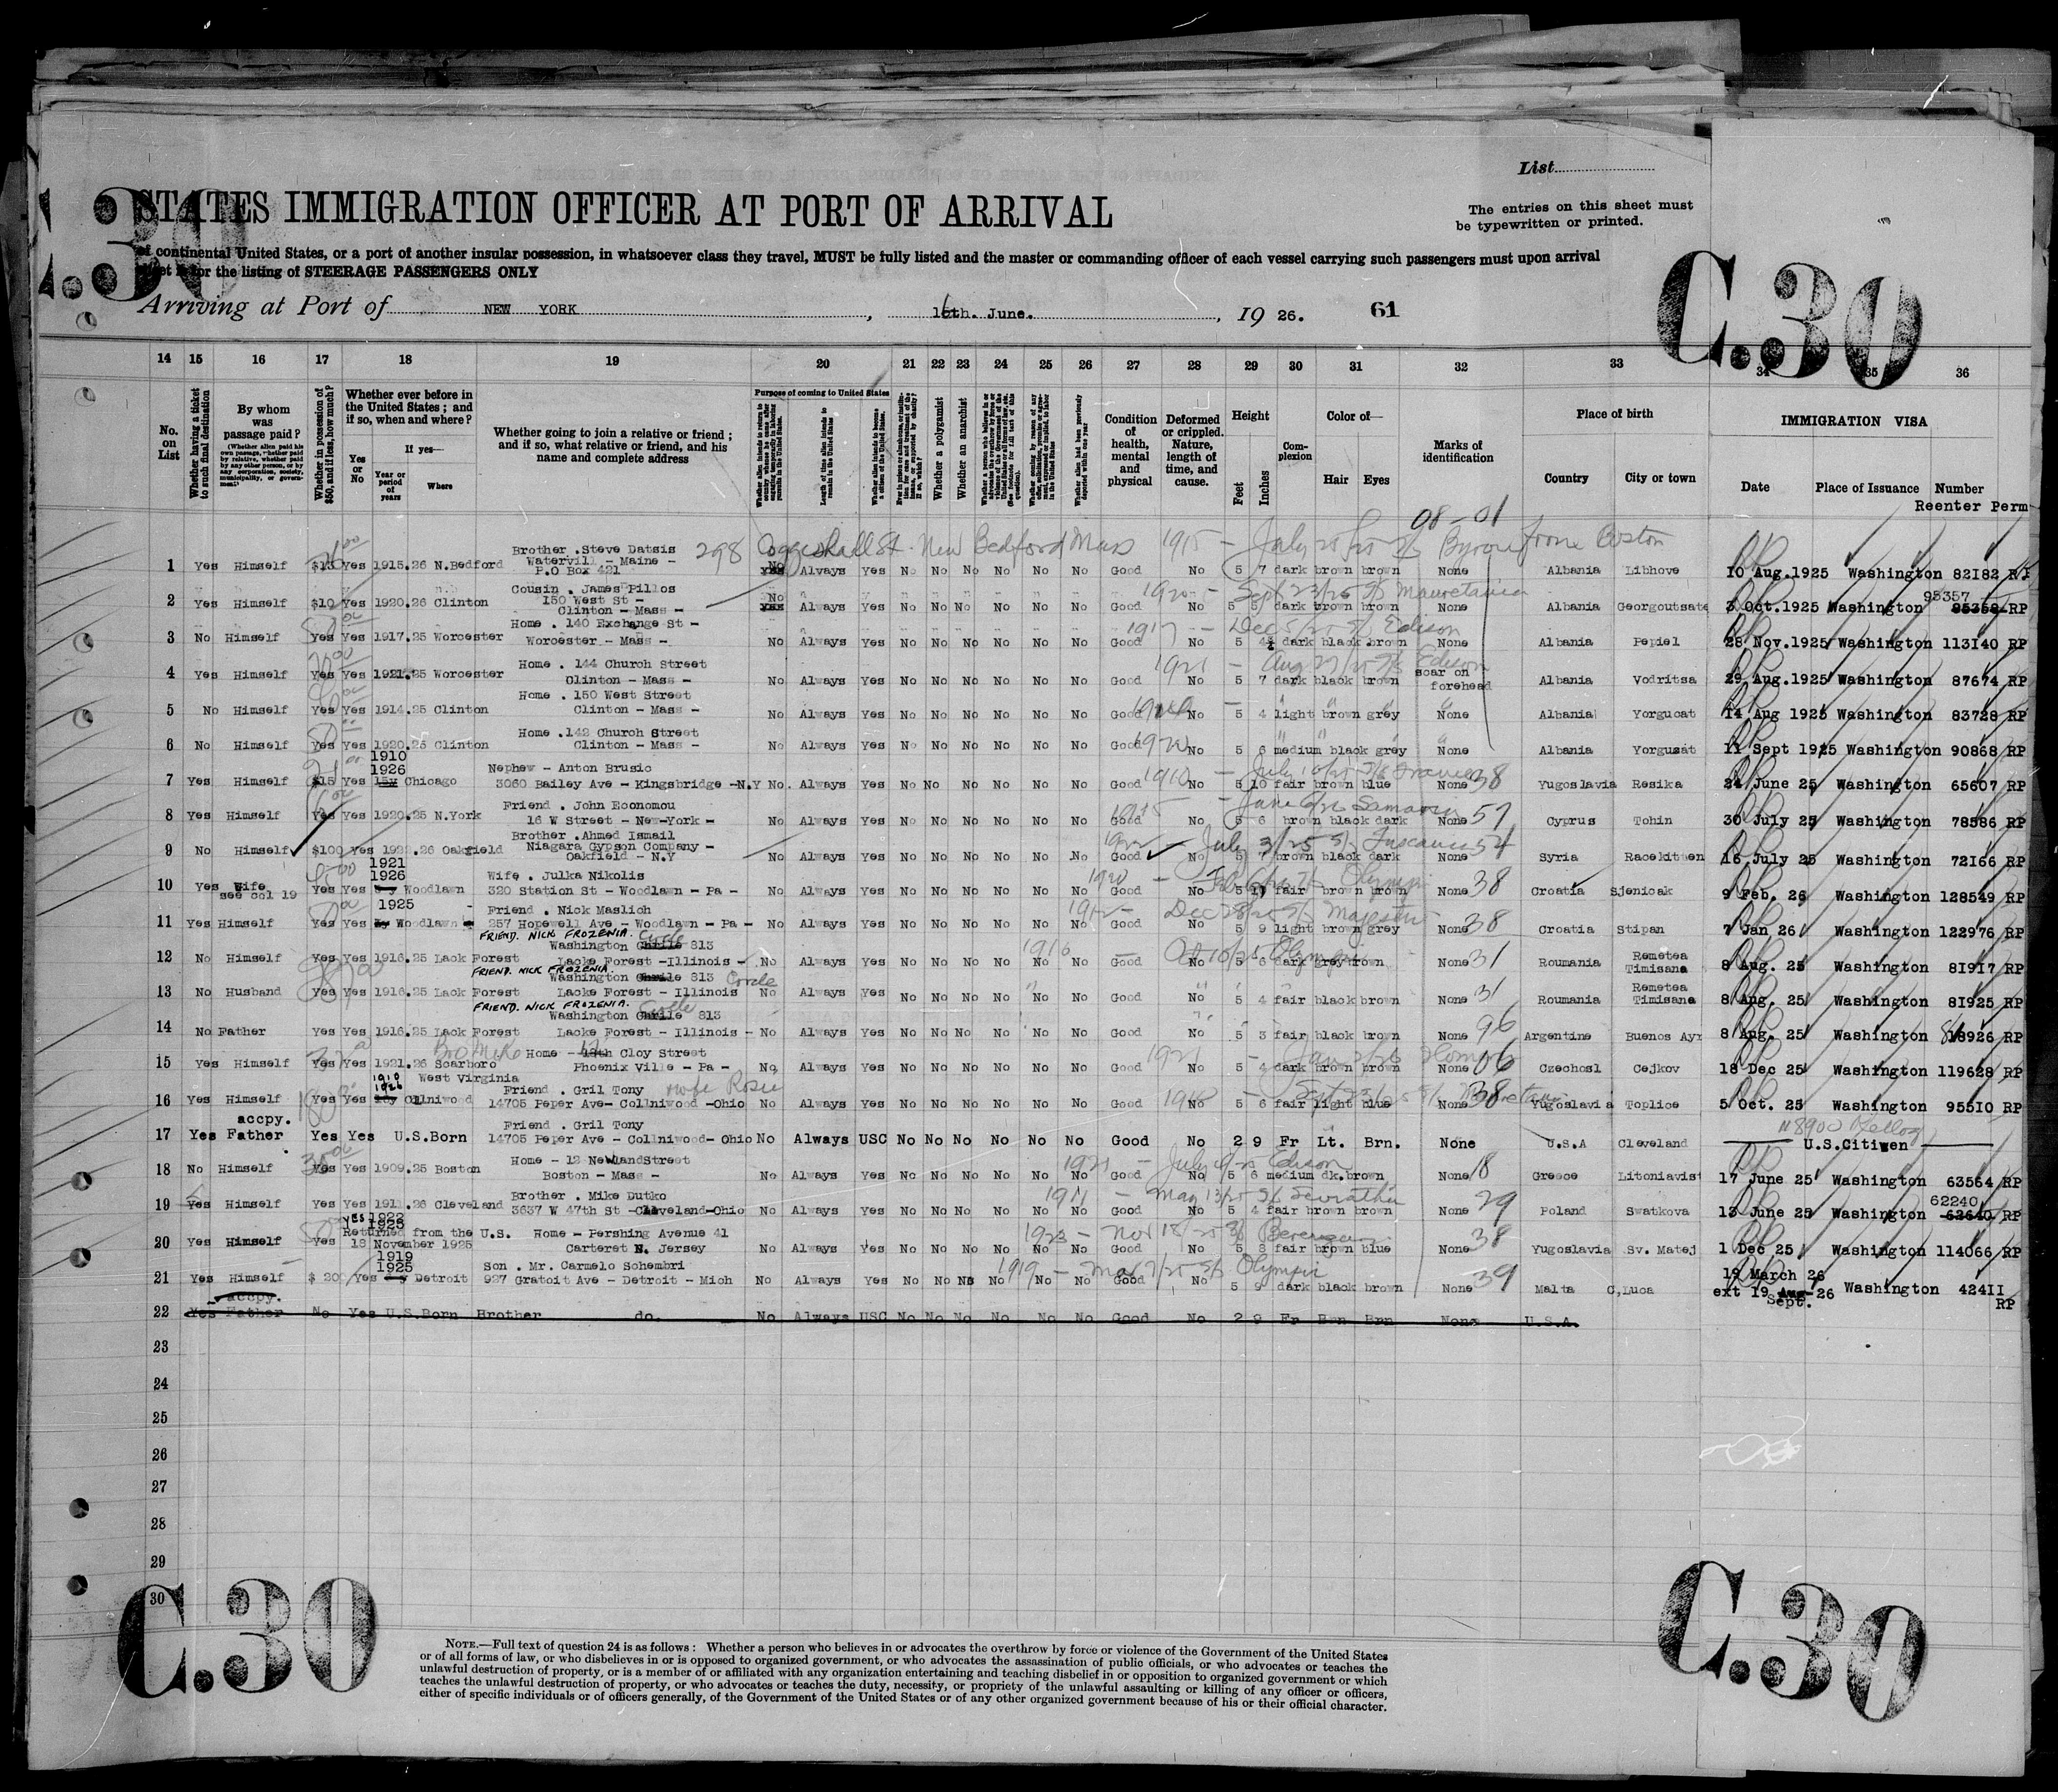 List
C.30
STATES IMMIGRATION OFFICER AT PORT OF ARRIVAL
The entries on this sheet must
be typewritten or printed.
of continental United States, or a port of another insular possession, in whatsoever class they travel, MUST be fully listed and the master or commanding officer of each vessel carrying such passengers must upon arrival
for the listing of STEERAGE PASSENGERS ONLY
C.30
Arriving at Port of NEW YORK, 16th. June. , 19 26. 61
14 15 16 17 18 19 20 21 22 23 24 25 26 27 28 29 30 31 32 33 34 35 36
No. on List
Whether having a ticket to such final destination
By whom was passage paid?
(Whether alien paid his own passage, whether paid by relative, whether paid by any other person, or by any corporation, society, municipality, or government)
Whether in possession of $50, and if less, how much?
Whether ever before in the United States; and if so, when and where?
Yes or No
If yes—
Year or period of years
Where
Whether going to join a relative or friend; and if so, what relative or friend, and his name and complete address
Purpose of coming to United States
Length of time alien intends to remain in the United States
Whether alien intends to become a citizen of the United States
Whether a polygamist
Whether an anarchist
Condition of health, mental and physical
Deformed or crippled. Nature, length of time, and cause.
Height
Feet Inches
Complexion
Color of—
Hair Eyes
Marks of identification
Place of birth
Country City or town
IMMIGRATION VISA
Date Place of Issuance Number
Reenter Perm
98-01
298 Coggeshall St. New Bedford Mass 1915 - July 25/25 Byron from Boston
Brother . Steve Datsis
Watervill - Maine -
1 Yes Himself $15 Yes 1915.26 N.Bedford P.O Box 421 No Yes Always Yes No No No No No No Good No 5 7 dark brown brown None Albania Libhove 10 Aug.1925 Washington 82182 RP
Cousin . James Pillos
150 West St -
1920 - Sept 23/25 S/S Mauretania
95357
2 Yes Himself $10 Yes 1920.26 Clinton Clinton - Mass - No Yes Always Yes No No No No No No Good No 5 5 dark brown brown None Albania Georgoutsate 3 Oct.1925 Washington 95358 RP
Home . 140 Exchange St -
1917 - Dec 5/25 S/S Edison
3 No Himself Yes Yes 1917.25 Worcester Worcester - Mass - No Always Yes No No No No No No Good No 5 4½ dark black brown None Albania Pepiel 28 Nov.1925 Washington 113140 RP
Home . 144 Church Street
1921 - Aug 27/25 S/S Edison
4 Yes Himself Yes Yes 1921.25 Worcester Clinton - Mass - No Always Yes No No No No No No Good No 5 7 dark black brown scar on forehead Albania Vodritsa 29 Aug.1925 Washington 87674 RP
Home . 150 West Street
5 No Himself Yes Yes 1914.25 Clinton Clinton - Mass - No Always Yes No No No No No No Good No 5 4 light brown grey None Albania Yorgucat 14 Aug 1925 Washington 83728 RP
Home . 142 Church Street
6 No Himself Yes Yes 1920.25 Clinton Clinton - Mass - No Always Yes No No No No No No Good 1920 No 5 6 medium black grey None Albania Yorgusat 11 Sept 1925 Washington 90868 RP
1910
1926
Nephew - Anton Brusic
1910 - July 10/25 S/S France
7 Yes Himself $15 Yes Chicago 3060 Bailey Ave - Kingsbridge -N.Y No. Always Yes No No No No No No Good No 5 10 fair brown blue None 38 Yugoslavia Resika 24 June 25 Washington 65607 RP
Friend . John Economou
1915 - June 6/25 Samaria
8 Yes Himself Yes Yes 1920.25 N.York 16 W Street - New-York - No Always Yes No No No No No No Good No 5 6 brown black dark None 57 Cyprus Tohin 30 July 25 Washington 78586 RP
Brother . Ahmed Ismail
Niagara Gypson Company -
1922 - July 3/25 S/S Tuscania
9 No Himself $100 Yes 1922.26 Oakfield Oakfield - N.Y No Always Yes No No No No No No Good No 5 7 brown black dark None 54 Syria Racekitten 16 July 25 Washington 72166 RP
1921
1926
Wife . Julka Nikolis
1920 - Olympic
10 Yes Wife Yes Yes Woodlawn 320 Station St - Woodlawn - Pa - No Always Yes No No No No No No Good No 5 11 fair brown brown None 38 Croatia Sjenicak 9 Feb. 26 Washington 128549 RP
see col 19
1925
Friend . Nick Maslich
1912 - Dec 28/25 S/S Majestic
11 Yes Himself Yes Yes Woodlawn 257 Hopewell Ave - Woodlawn - Pa - No Always Yes No No No No No No Good No 5 9 light brown grey None 38 Croatia Stipan 7 Jan 26 Washington 122976 RP
FRIEND. NICK FROZENIA. Circle
Washington 813
1916 - Oct 10/25 Olympic
12 No Himself Yes Yes 1916.25 Lack Forest Lacke Forest -Illinois - No Always Yes No No No No No No Good No 5 6 dark grey brown None 31 Roumania Remetea Timisana 8 Aug. 25 Washington 81917 RP
FRIEND. NICK FROZENIA.
Washington 813 Circle
13 No Husband Yes Yes 1916.25 Lack Forest Lacke Forest - Illinois No Always Yes No No No No No No Good No 5 4 fair black brown None 31 Roumania Remetea Timisana 8 Aug. 25 Washington 81925 RP
FRIEND. NICK FROZENIA. Circle
Washington 813
14 No Father Yes Yes 1916.25 Lack Forest Lacke Forest - Illinois - No Always Yes No No No No No No Good No 5 3 fair black brown None 96 Argentine Buenos Ayr 8 Aug. 25 Washington 81926 RP
Bro Mike Home - 12th Cloy Street
1921 - Jan 2/26 Homeric
15 Yes Himself Yes Yes 1921.26 Scarboro Phoenix Ville - Pa - No Always Yes No No No No No No Good No 5 4 dark brown brown None 06 Czechosl Cejkov 18 Dec 25 Washington 119628 RP
West Virginia
1910
1926
Friend . Gril Tony wife Rosie
16 Yes Himself Yes Yes Collniwood 14705 Peper Ave- Collniwood -Ohio No Always Yes No No No No No No Good No 5 6 fair light blue None 38 Yugoslavia Toplice 5 Oct. 25 Washington 95510 RP
accpy.
Friend . Gril Tony
118900 Kellogg
17 Yes Father Yes Yes U.S.Born 14705 Peper Ave - Collniwood- Ohio No Always USC No No No No No No Good No 2 9 Fr Lt. Brn. None U.S.A Cleveland U.S.Citiwen
Home - 12 NewlandStreet
1921 - July 4/25 Edison
18 No Himself Yes Yes 1909.25 Boston Boston - Mass - No Always Yes No No No No No No Good No 5 6 medium dk.brown None 18 Greece Litoniavist 17 June 25 Washington 63564 RP
Brother . Mike Dutko
1911 - May 13/25 S/S Leviathan
62240
19 Yes Himself Yes Yes 1911.26 Cleveland 3637 W 47th St -Cleveland-Ohio No Always Yes No No No No No No Good No 5 4 fair brown brown None 29 Poland Swatkova 13 June 25 Washington 62640 RP
YES 1922
1925
Returned from the U.S. Home - Pershing Avenue 41
1923 - Nov 18/25 S/S Berengaria
20 Yes Himself Yes 18 November 1925 Carteret N. Jersey No Always Yes No No No No No No Good No 5 8 fair brown blue None 38 Yugoslavia Sv. Matej 1 Dec 25 Washington 114066 RP
1919
1925
Son . Mr. Carmelo Schembri
1919 - Mar 7/25 S/S Olympic
19 March 26
21 Yes Himself $ 20 Yes Detroit 927 Gratoit Ave - Detroit - Mich No Always Yes No No No No No No Good No 5 9 dark black brown None 39 Malta C,Luca ext 19 Aug 26 Washington 42411
Sept. RP
accpy.
22 Yes Father No Yes U.S.Born Brother do. No Always USC No No No No No No Good No 2 9 Fr Brn Brn None U.S.A.
23
24
25
26
27
28
29
30
C.30
C.30
NOTE.—Full text of question 24 is as follows: Whether a person who believes in or advocates the overthrow by force or violence of the Government of the United States
or of all forms of law, or who disbelieves in or is opposed to organized government, or who advocates the assassination of public officials, or who advocates or teaches the
unlawful destruction of property, or is a member of or affiliated with any organization entertaining and teaching disbelief in or opposition to organized government or which
teaches the unlawful destruction of property, or who advocates or teaches the duty, necessity, or propriety of the unlawful assaulting or killing of any officer or officers,
either of specific individuals or of officers generally, of the Government of the United States or of any other organized government because of his or their official character.